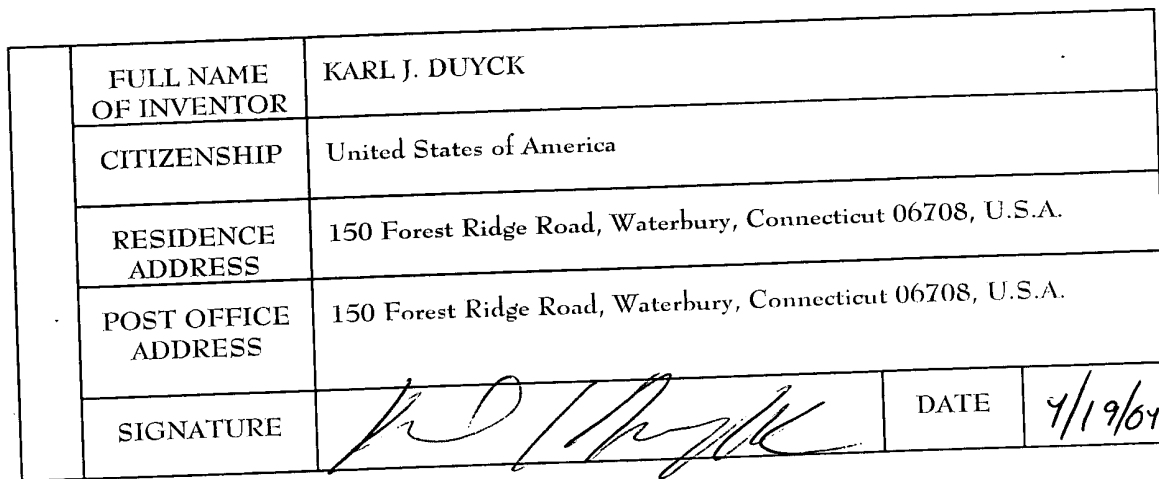 FULL NAME
OF INVENTOR
KARL J. DUYCK
CITIZENSHIP
United States of America
RESIDENCE
ADDRESS
150 Forest Ridge Road, Waterbury, Connecticut 06708, U.S.A.
POST OFFICE
ADDRESS
150 Forest Ridge Road, Waterbury, Connecticut 06708, U.S.A.
SIGNATURE
DATE